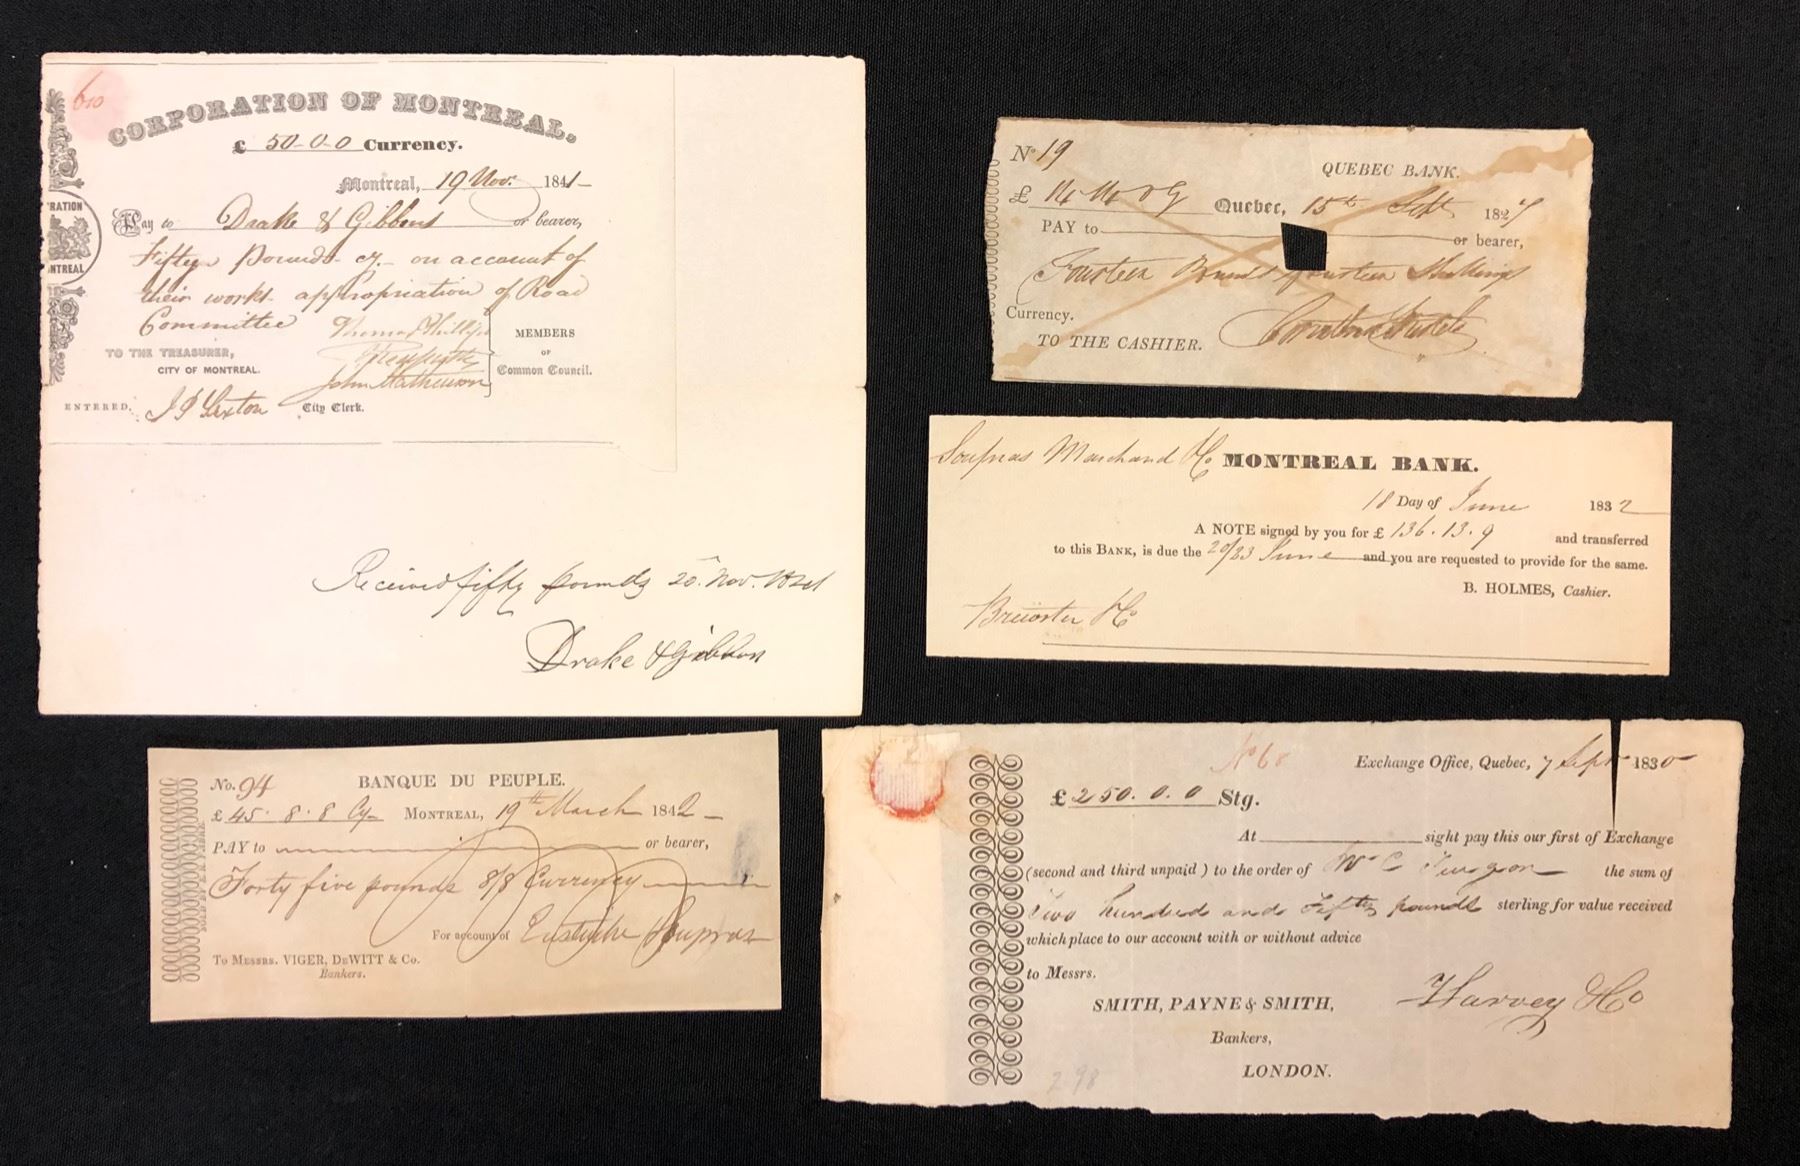 610
CORPORATION OF MONTREAL,
£ 50-0-0 Currency.
Montreal, 19 Nov. 1841-
Pay to Drake & Gibbons or bearer,
Fifty Pounds cy. on account of
their works appropriation of Road
Committee
RATION
NTREAL
Thomas Phillips
John Mathewson
MEMBERS
OF
Common Council.
TO THE TREASURER,
CITY OF MONTREAL.
ENTERED. J P Sexton City Clerk.
Received fifty pounds 20 Nov. 1841
Drake & Gibbon
No. 94 BANQUE DU PEUPLE.
£ 45. 8. 8 Cy MONTREAL, 19th March 1842
PAY to or bearer,
Forty five pounds 8/8 Currency
For account of Eustache Soupras
To MESSRS. VIGER, DEWITT & Co.
Bankers.
No 19
QUEBEC BANK.
£ 14 14 Quebec, 15th Sept 1827
PAY to or bearer,
Fourteen Pounds fourteen Shillings
Currency.
TO THE CASHIER.
Soupras Marchand & Co MONTREAL BANK.
18 Day of June 1832
A NOTE signed by you for £ 136. 13. 9 and transferred
to this BANK, is due the 20/23 June and you are requested to provide for the same.
B. HOLMES, Cashier.
Brewster & Co
No 68
Exchange Office, Quebec, 7 Sept 1830
£ 250. 0. 0 Stg.
At sight pay this our first of Exchange
(second and third unpaid) to the order of Wm C Turgeon the sum of
Two hundred and Fifty pounds sterling for value received
which place to our account with or without advice
to Messrs.
SMITH, PAYNE & SMITH,
Bankers,
LONDON.
Harvey & Co
298